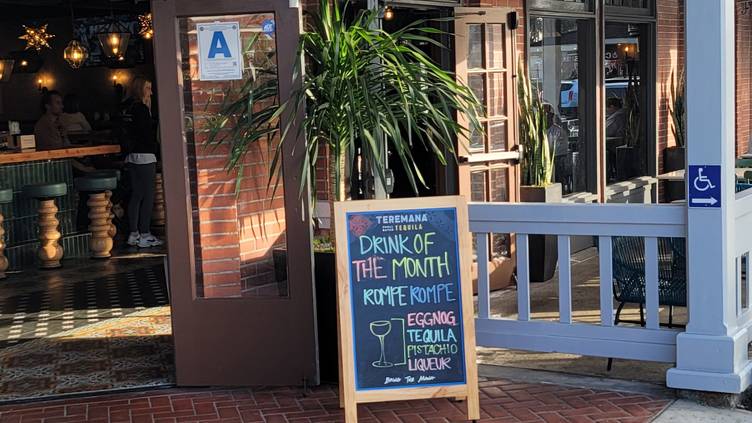 A
TEREMANA
SMALL BATCH TEQUILA
DRINK OF
THE MONTH
ROMPE ROMPE
EGGNOG
TEQUILA
PISTACHIO
LIQUEUR